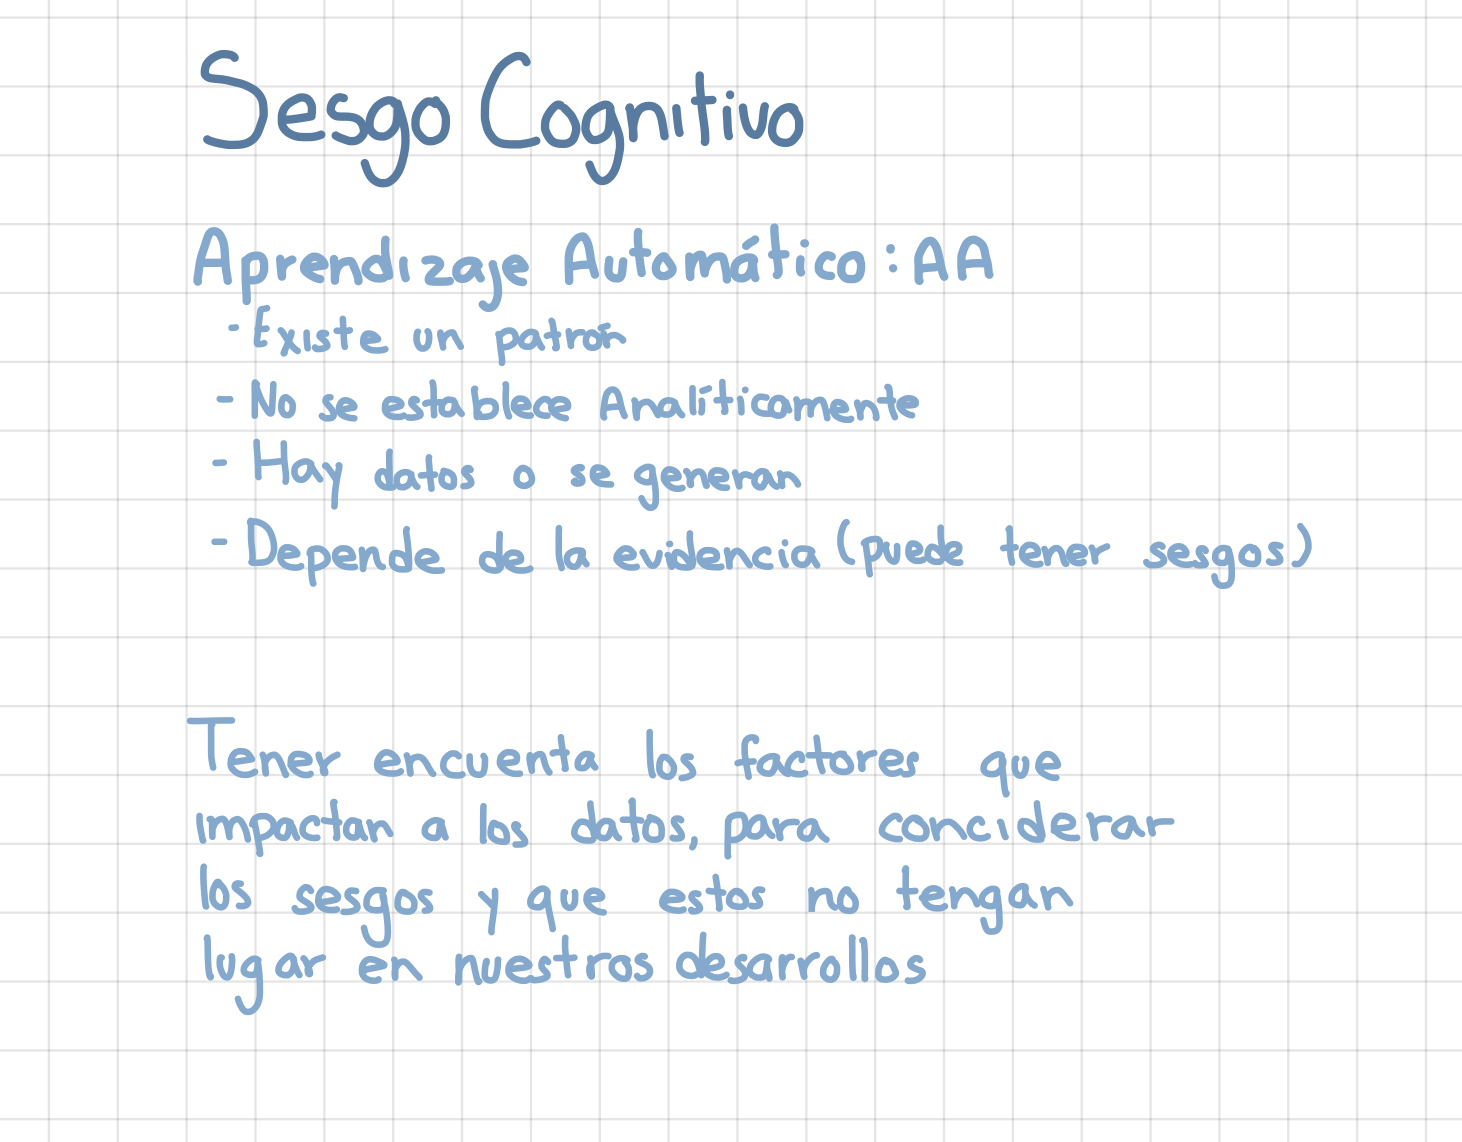 Sesgo Cognitivo
Aprendizaje Automático: AA
- Existe un patrón
- No se establece Analíticamente
- Hay datos o se generan
- Depende de la evidencia (puede tener sesgos)
Tener encuenta los factores que
impactan a los datos, para conciderar
los sesgos y que estos no tengan
lugar en nuestros desarrollos